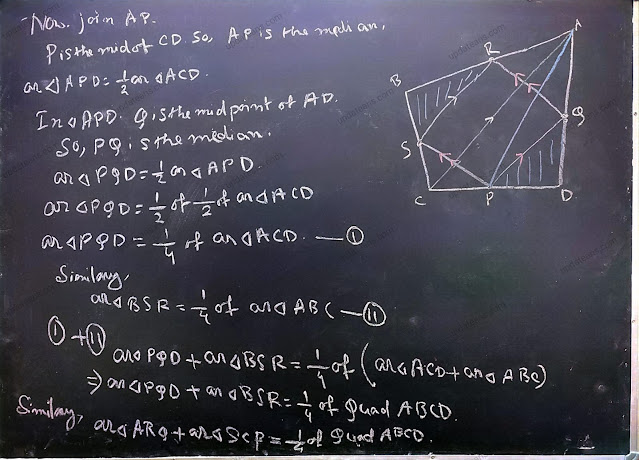 Now. join AP.
P is the mid of CD. So, AP is the median,
ar △APD = 1/2 ar △ACD.
In △APD. Q is the midpoint of AD.
So, PQ is the median.
ar △PQD = 1/2 ar △APD
ar △PQD = 1/2 of 1/2 of ar △ACD
ar △PQD = 1/4 of ar △ACD. — I
Similary,
ar △BSR = 1/4 of ar △ABC — II
I + II
ar △PQD + ar △BSR = 1/4 of (ar △ACD + ar △ABC)
⇒ ar △PQD + ar △BSR = 1/4 of Quad ABCD.
Similary, ar △ARQ + ar △SCP = 1/4 of Quad ABCD.
A
R
B
Q
S
C
P
D